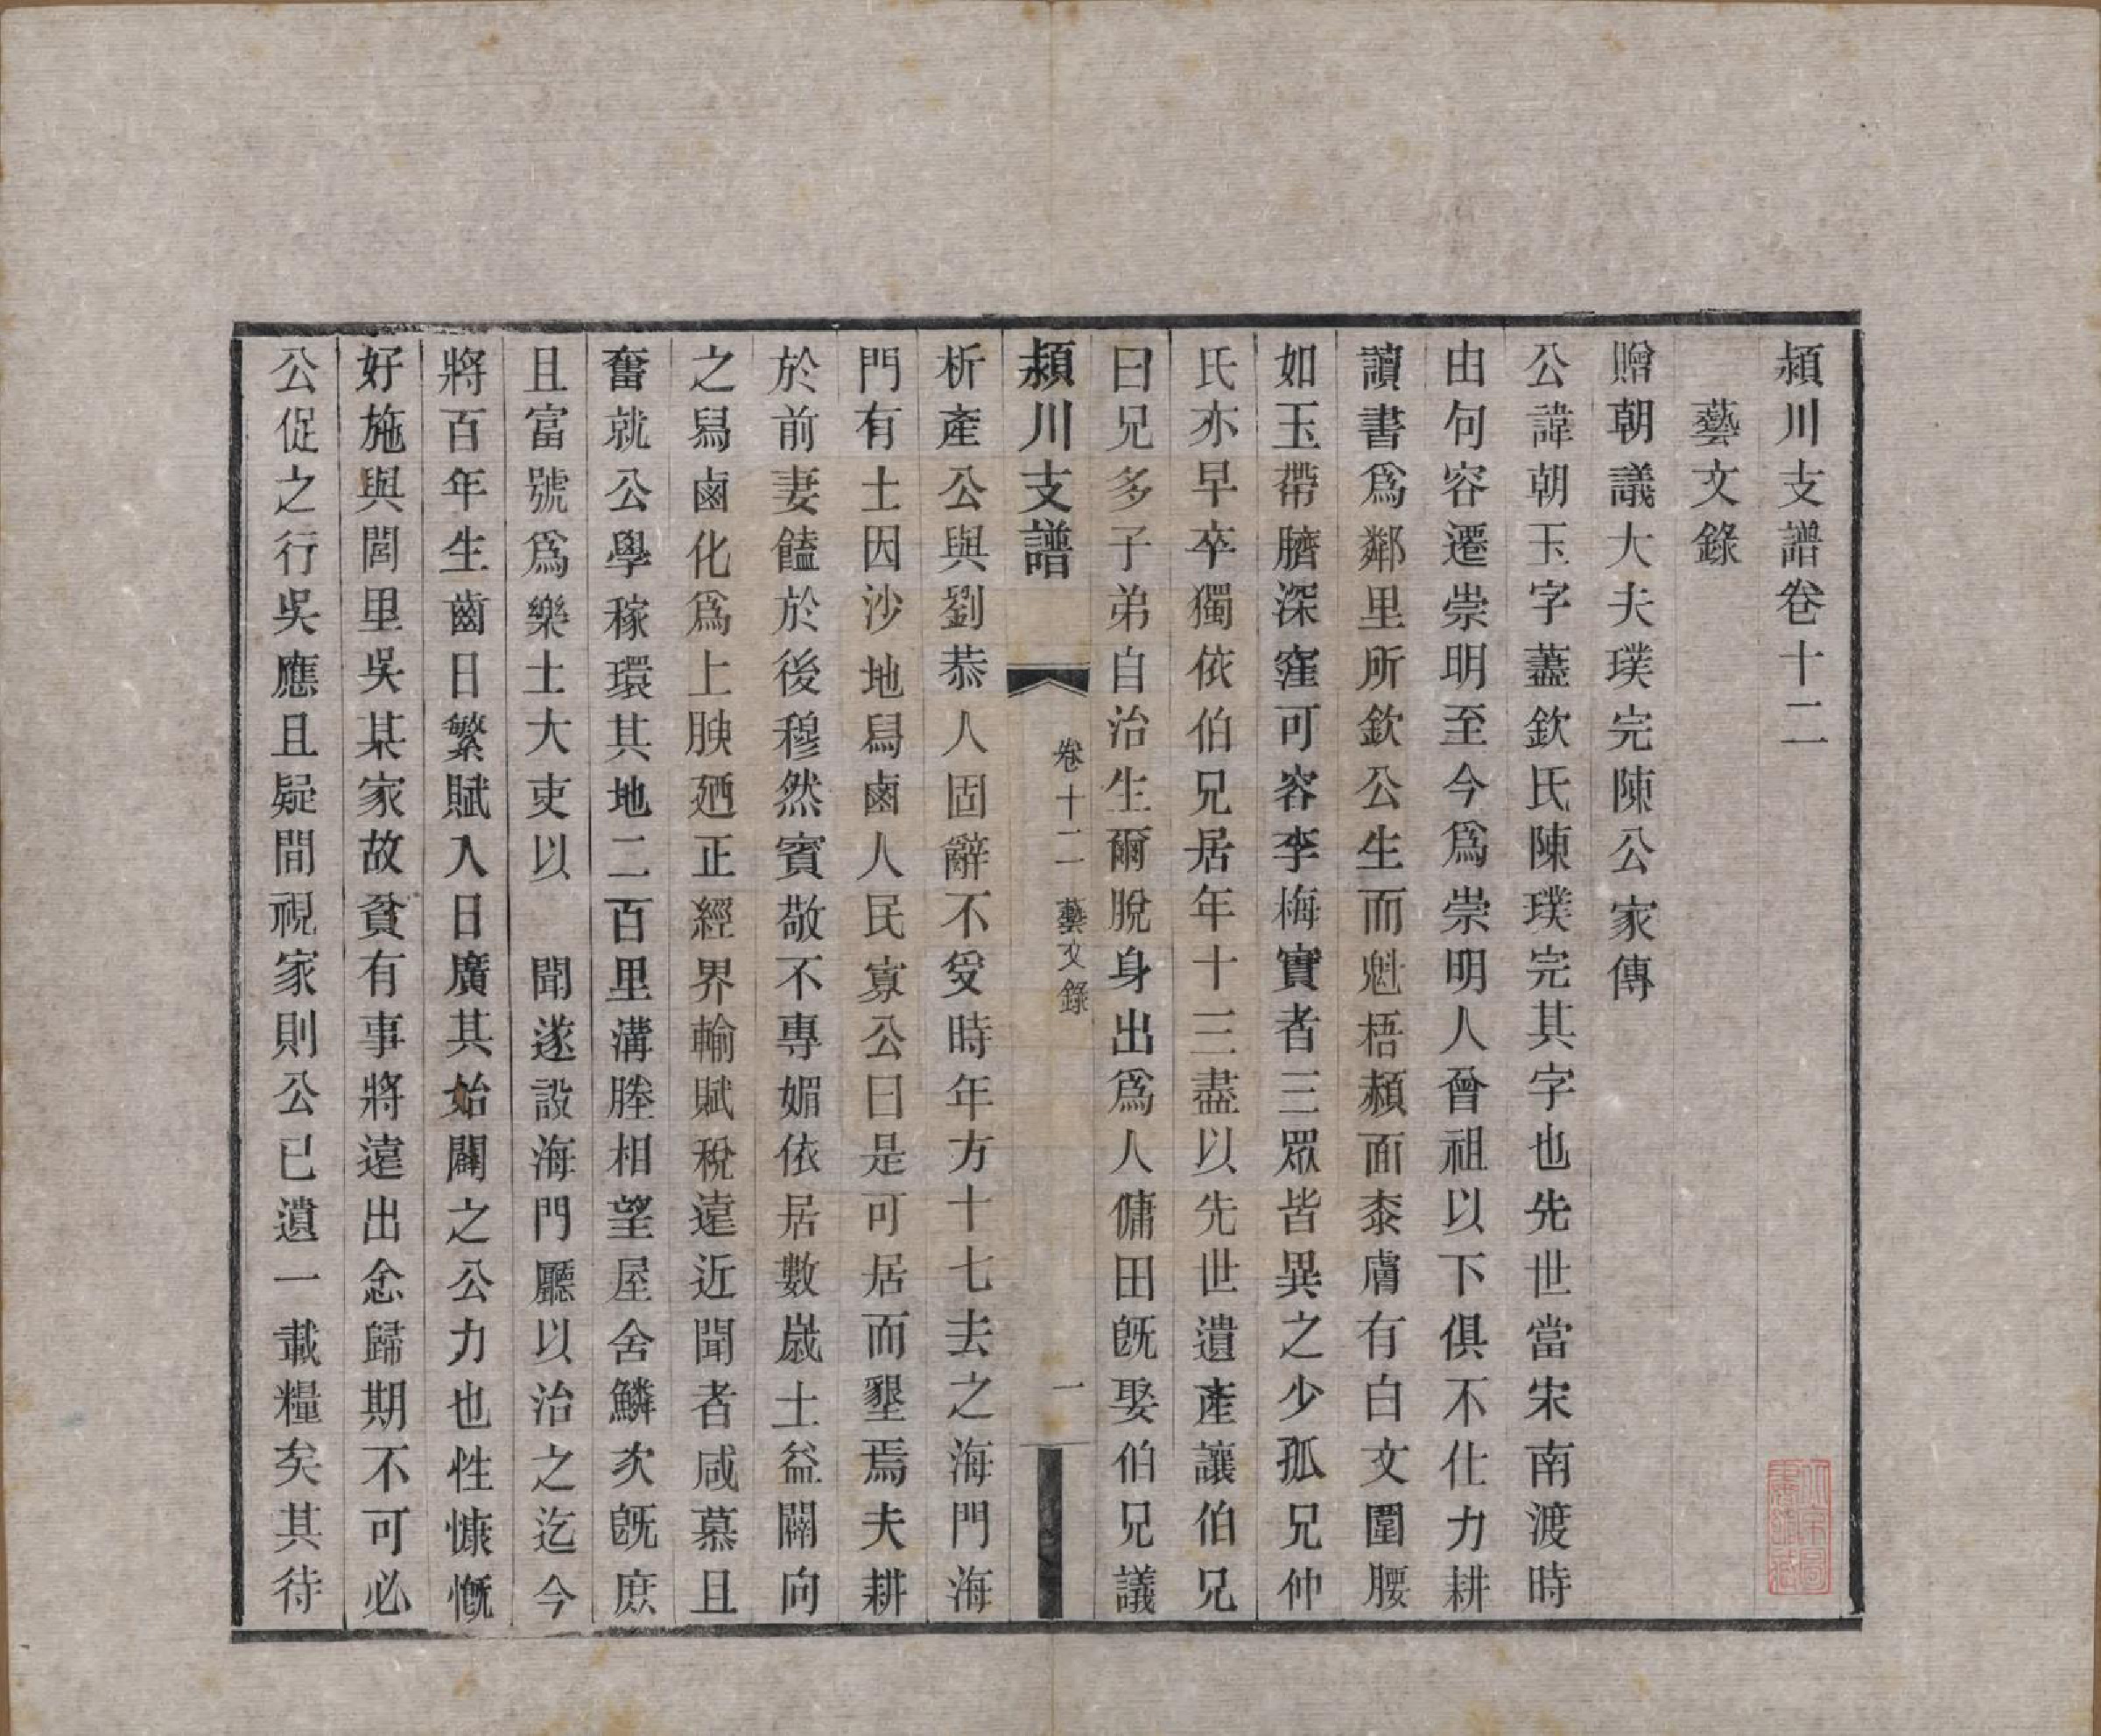 潁川支譜卷十二
藝文錄
贈朝議大夫璞完陳公家傳
公諱朝玉字藎欽氏陳璞完其字也先世當宋南渡時
由句容遷崇明至今爲崇明人曾祖以下俱不仕力耕
讀書爲鄰里所欽公生而魁梧頳面桼膚有白文圍腰
如玉帶臍深窪可容李梅實者三眾皆異之少孤兄仲
氏亦早卒獨依伯兄居年十三盡以先世遺產讓伯兄
曰兄多子弟自治生爾脫身出爲人傭田旣娶伯兄議
潁川支譜 卷十二 藝文錄 一
析產公與劉恭人固辭不受時年方十七去之海門海
門有土因沙地舄鹵人民寡公曰是可居而墾焉夫耕
於前妻饁於後穆然賓敬不專媚依居數歲土益闢向
之舄鹵化爲上腴廼正經界輸賦稅遠近聞者咸慕且
奮就公學稼環其地二百里溝塍相望屋舍鱗次旣庶
且富號爲樂土大吏以 聞遂設海門廳以治之迄今
將百年生齒日繁賦入日廣其始闢之公力也性慷慨
好施與閭里吳某家故貧有事將遠出念歸期不可必
公促之行吳應且疑間視家則公已遺一載糧矣其待